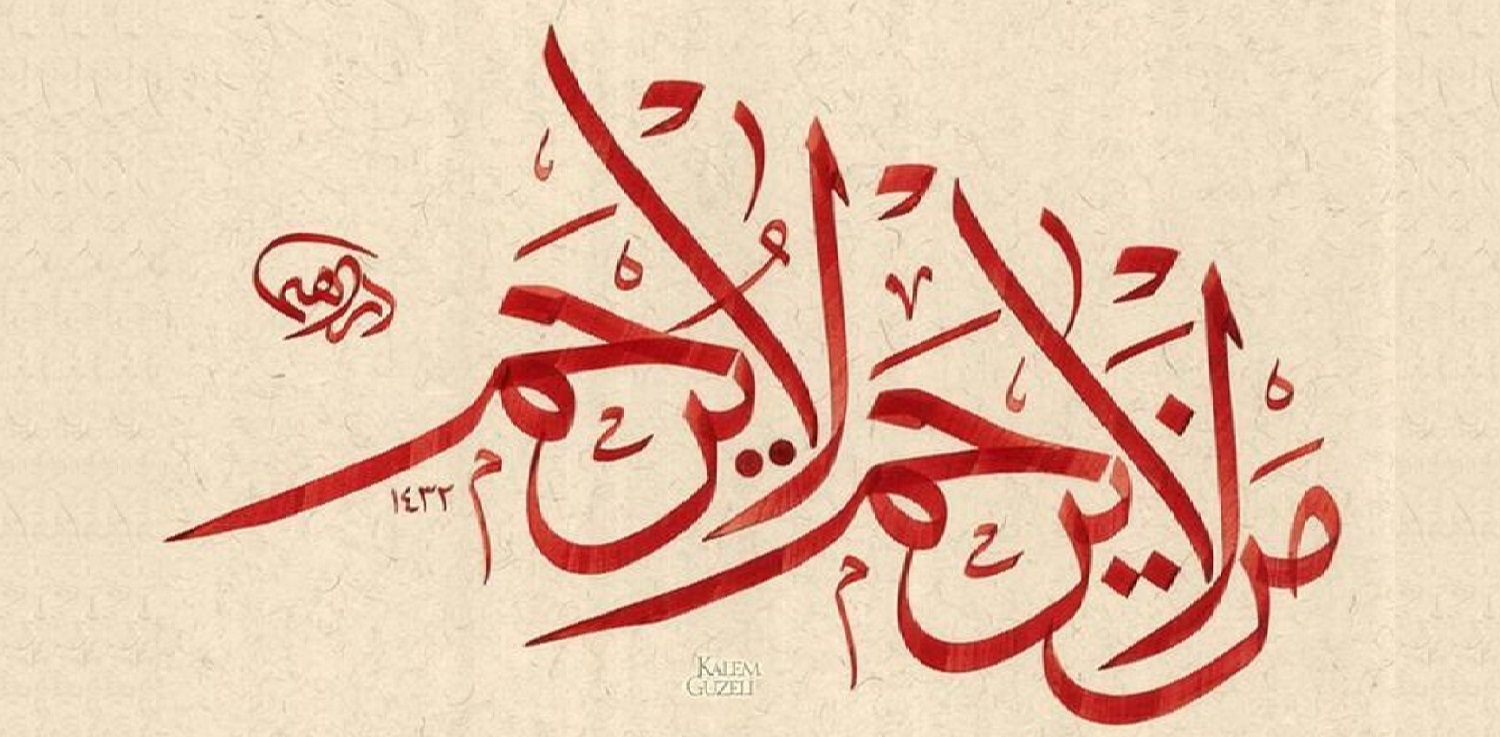 مَنْ لَا يَرْحَمْ لَا يُرْحَمْ
١٤٣٢
KALEM
GÜZELİ